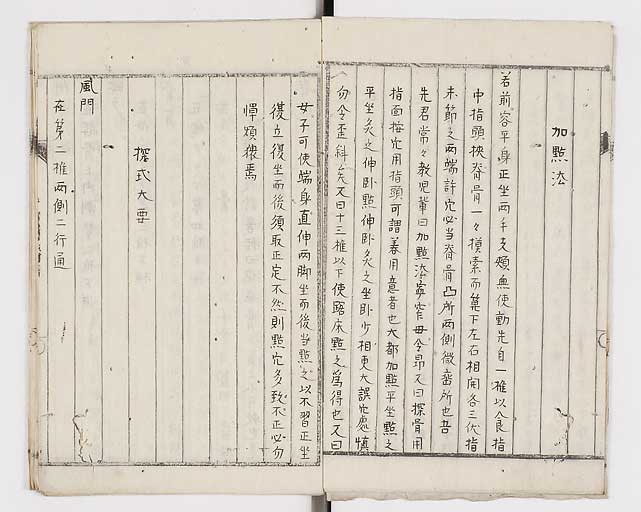 加點法
若前容平身正坐兩手支頰無使動先自一椎以食指
中指頭挾脊骨一々摸索而算下左右相開各三代指
末節之兩端許穴必當脊骨凸所兩側微凹所也吾
先君常々教児輩曰加點法寧窄毋令昂又曰探骨用
指面按穴用指頭可謂善用意者也大都加點平坐點之
平坐灸之伸卧點伸卧灸之坐卧少相更大誤穴處慎
勿令歪斜矣又曰十三椎以下使踞床點之為得也又曰
女子可使端身直伸兩脚坐而後當點之以不習正坐
復立復坐而後須取正定不然則點穴多致不正必勿
憚煩褻焉
探式大要
風門
在第二椎兩側二行通